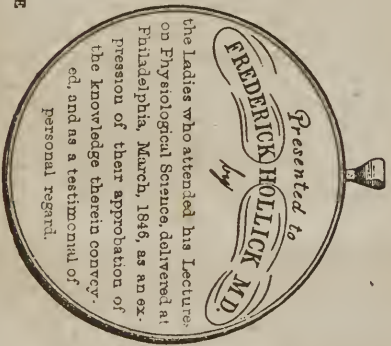 Presented to
FREDERICK HOLLICK M.D.
by
the Ladies who attended his Lectures
on Physiological Science, delivered at
Philadelphia, March, 1846, as an ex-
pression of their approbation of
the knowledge therein convey-
ed, and as a testimonial of
personal regard.
E